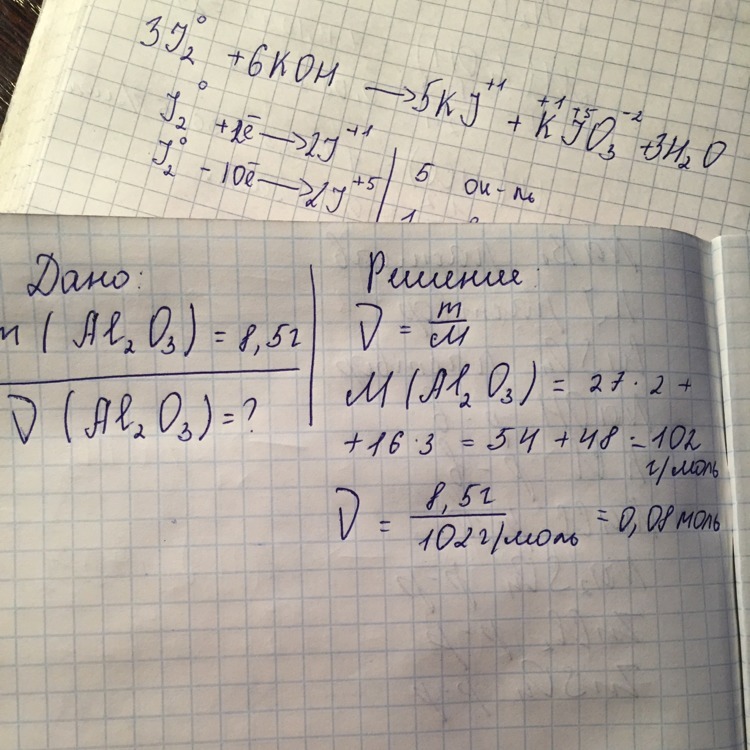 3J₂⁰ + 6KOH → 5KJ⁺¹ + K⁺¹J⁺⁵O₃⁻² + 3H₂O
J₂⁰ + 2ē → 2J⁺¹ | 5 ок-ль
J₂⁰ - 10ē → 2J⁺⁵ | 1
Дано:
m (Al₂O₃) = 8,5г
ν (Al₂O₃) = ?
Решение:
ν = m/M
M (Al₂O₃) = 27·2 +
+16·3 = 54 + 48 = 102
г/моль
ν = 8,5г / 102 г/моль = 0,08 моль